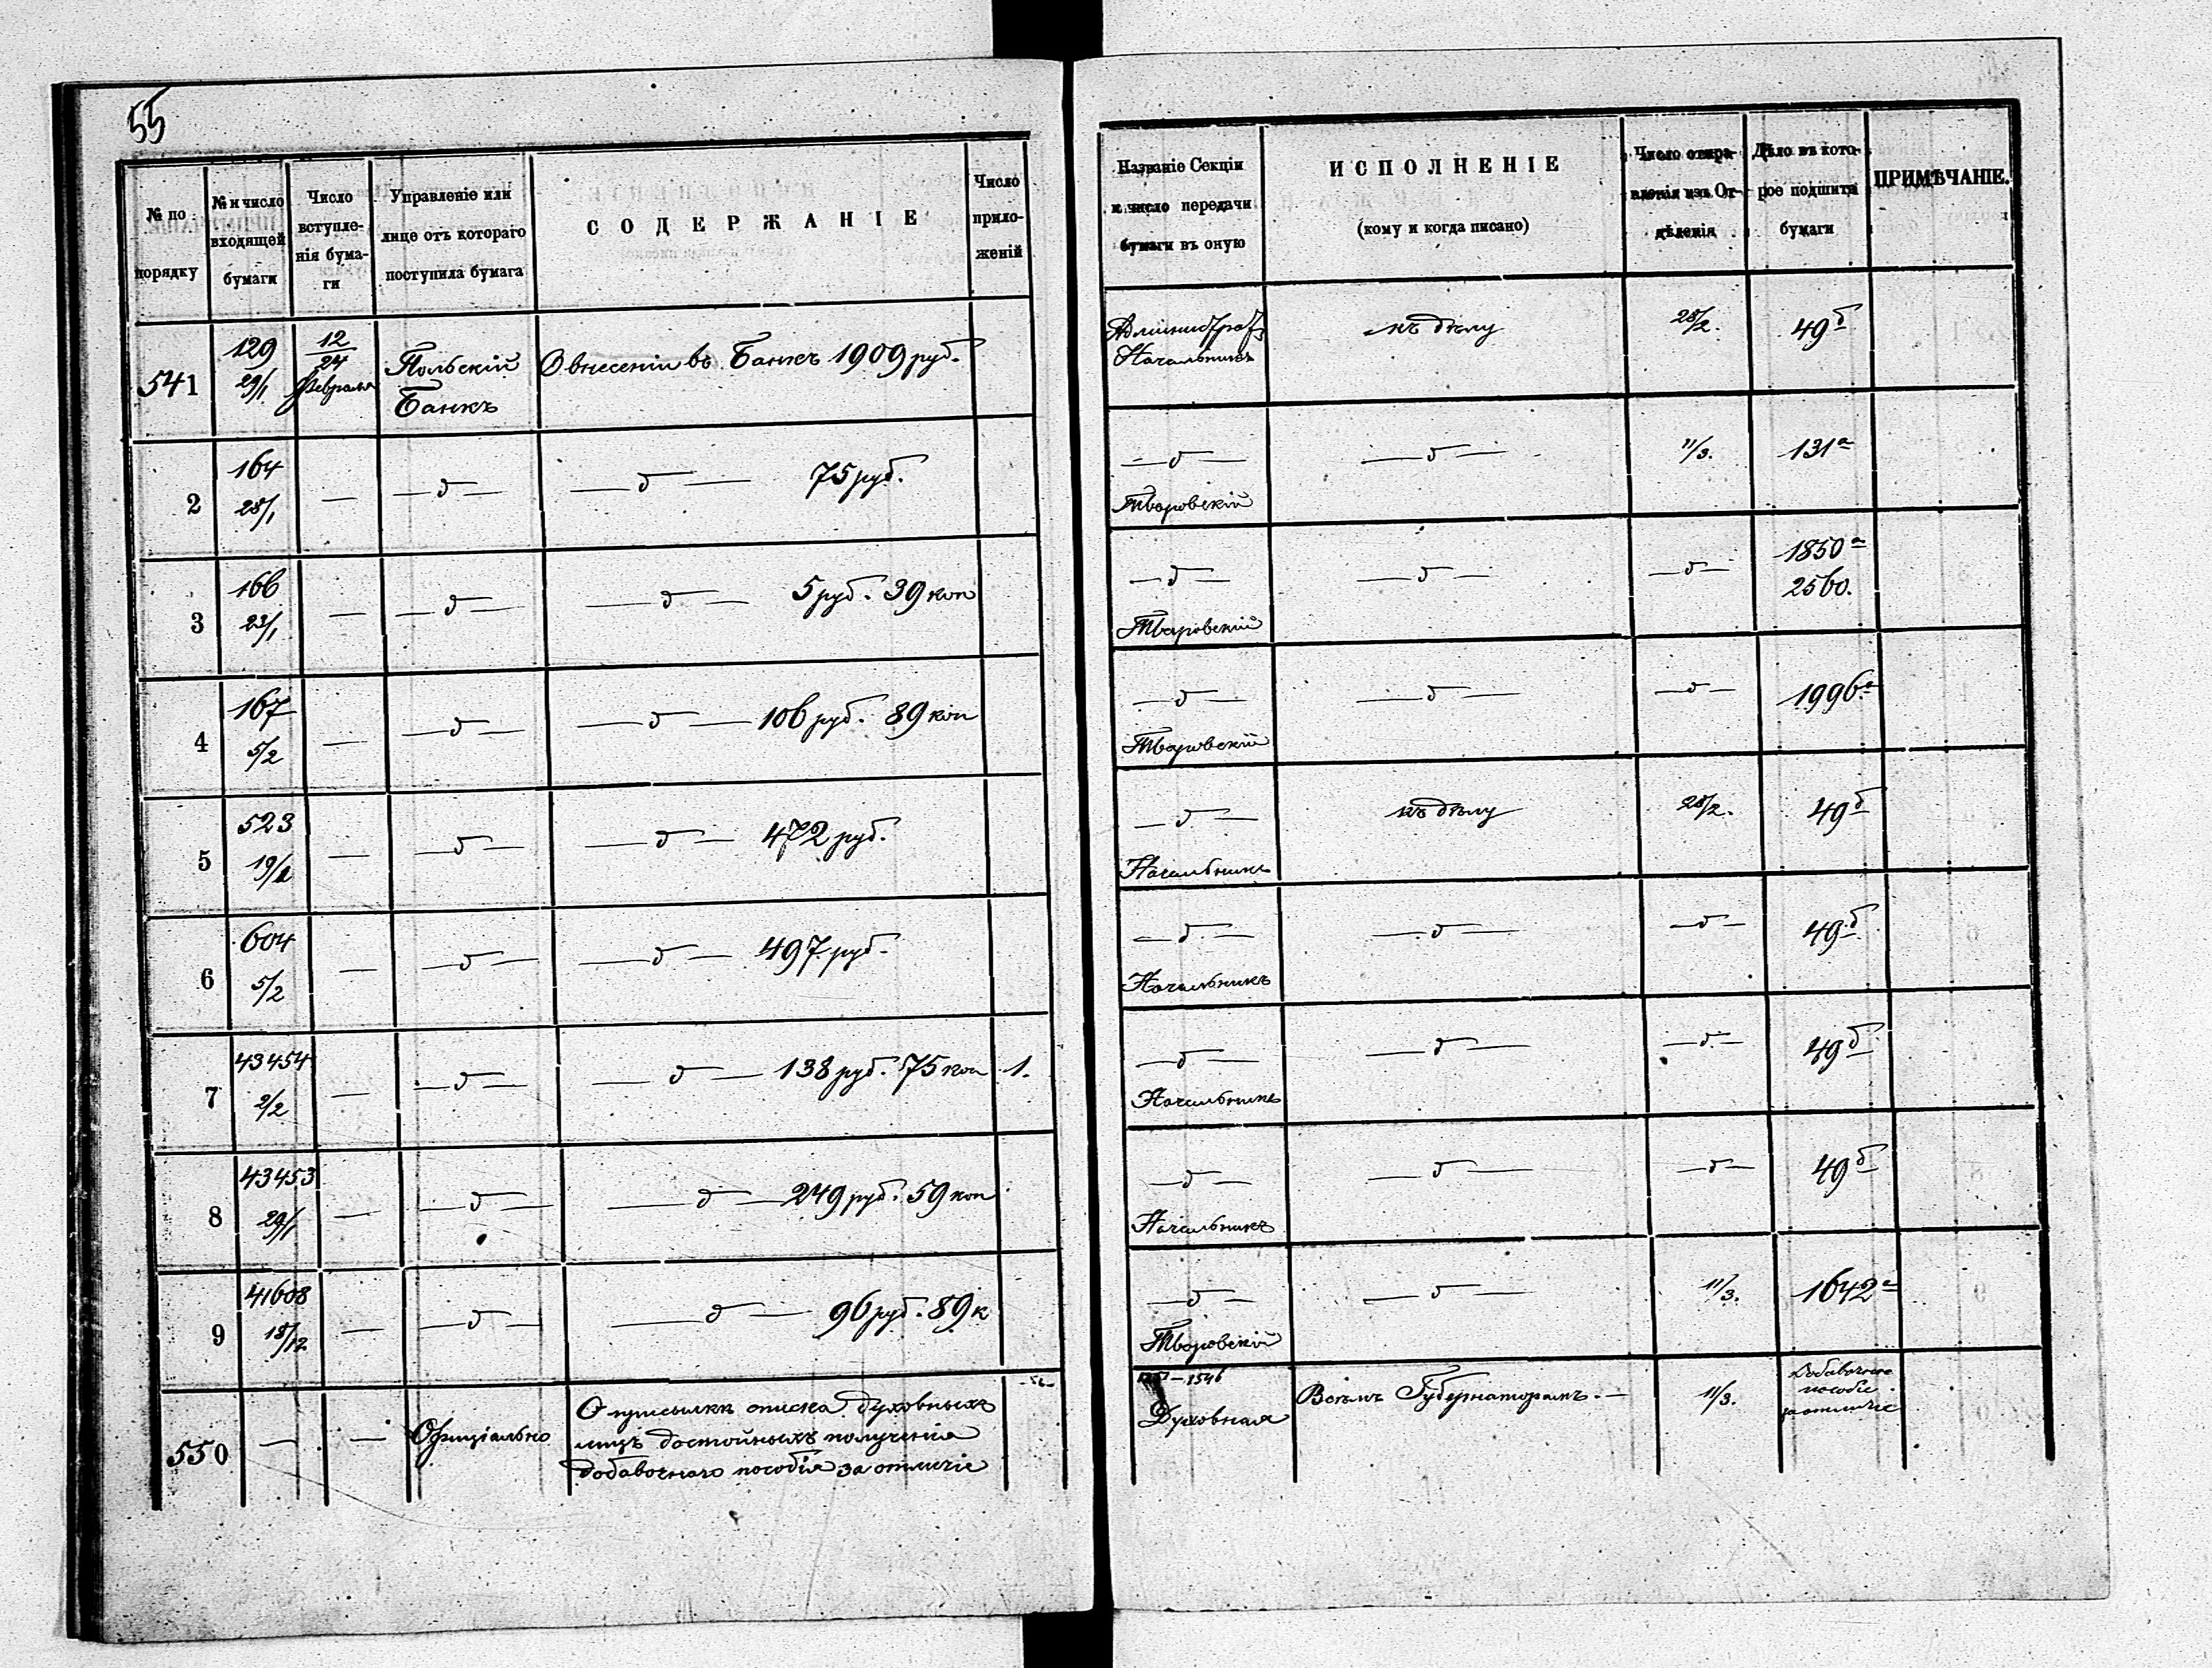 55
№ по порядку
№ и число входящей бумаги
Число вступле-нія бума-ги
Управленіе или лице отъ котораго поступила бумага
СОДЕРЖАНІЕ
Число прило-женій
Названіе Секціи и число передачи бумаги въ оную
ИСПОЛНЕНІЕ (кому и когда писано)
Число отпра-вленія изъ От-дѣленія
Дѣло въ кото-рое подшита бумаги
ПРИМѢЧАНІЕ.
541 129 29/1 12/24 февраля Польскій Банкъ О внесеніи въ Банкъ 1909 руб. Начальникъ къ дѣлу 28/2. 49б
2 164 28/1 — —д— —д— 75 руб. —д— Творовскій —д— 11/3. 131а
3 166 23/1 — —д— —д— 5 руб. 39 коп —д— Творовскій —д— —д— 1850а 2560.
4 167 5/2 — —д— —д— 106 руб. 89 коп —д— Творовскій —д— —д— 1996а
5 523 — —д— —д— 472 руб. —д— Начальникъ къ дѣлу 28/2. 49б
6 604 5/2 — —д— —д— 497 руб. —д— Начальникъ —д— —д— 49б
7 43454 2/2 — —д— —д— 138 руб. 75 коп 1. —д— Начальникъ —д— —д— 49б
8 43453 29/1 — —д— —д— 249 руб. 59 коп —д— Начальникъ —д— —д— 49б
9 41608 18/12 — —д— —д— 96 руб. 89 к —д— Творовскій —д— 11/3. 1642а
550 — — Офиціально О присылкѣ списка духовныхъ
лицъ достойныхъ полученія
добавочнаго пособія за отличіе
1546 Духовная Всѣмъ Губернаторамъ.— 11/3. Добавочное
пособіе
за отличіе